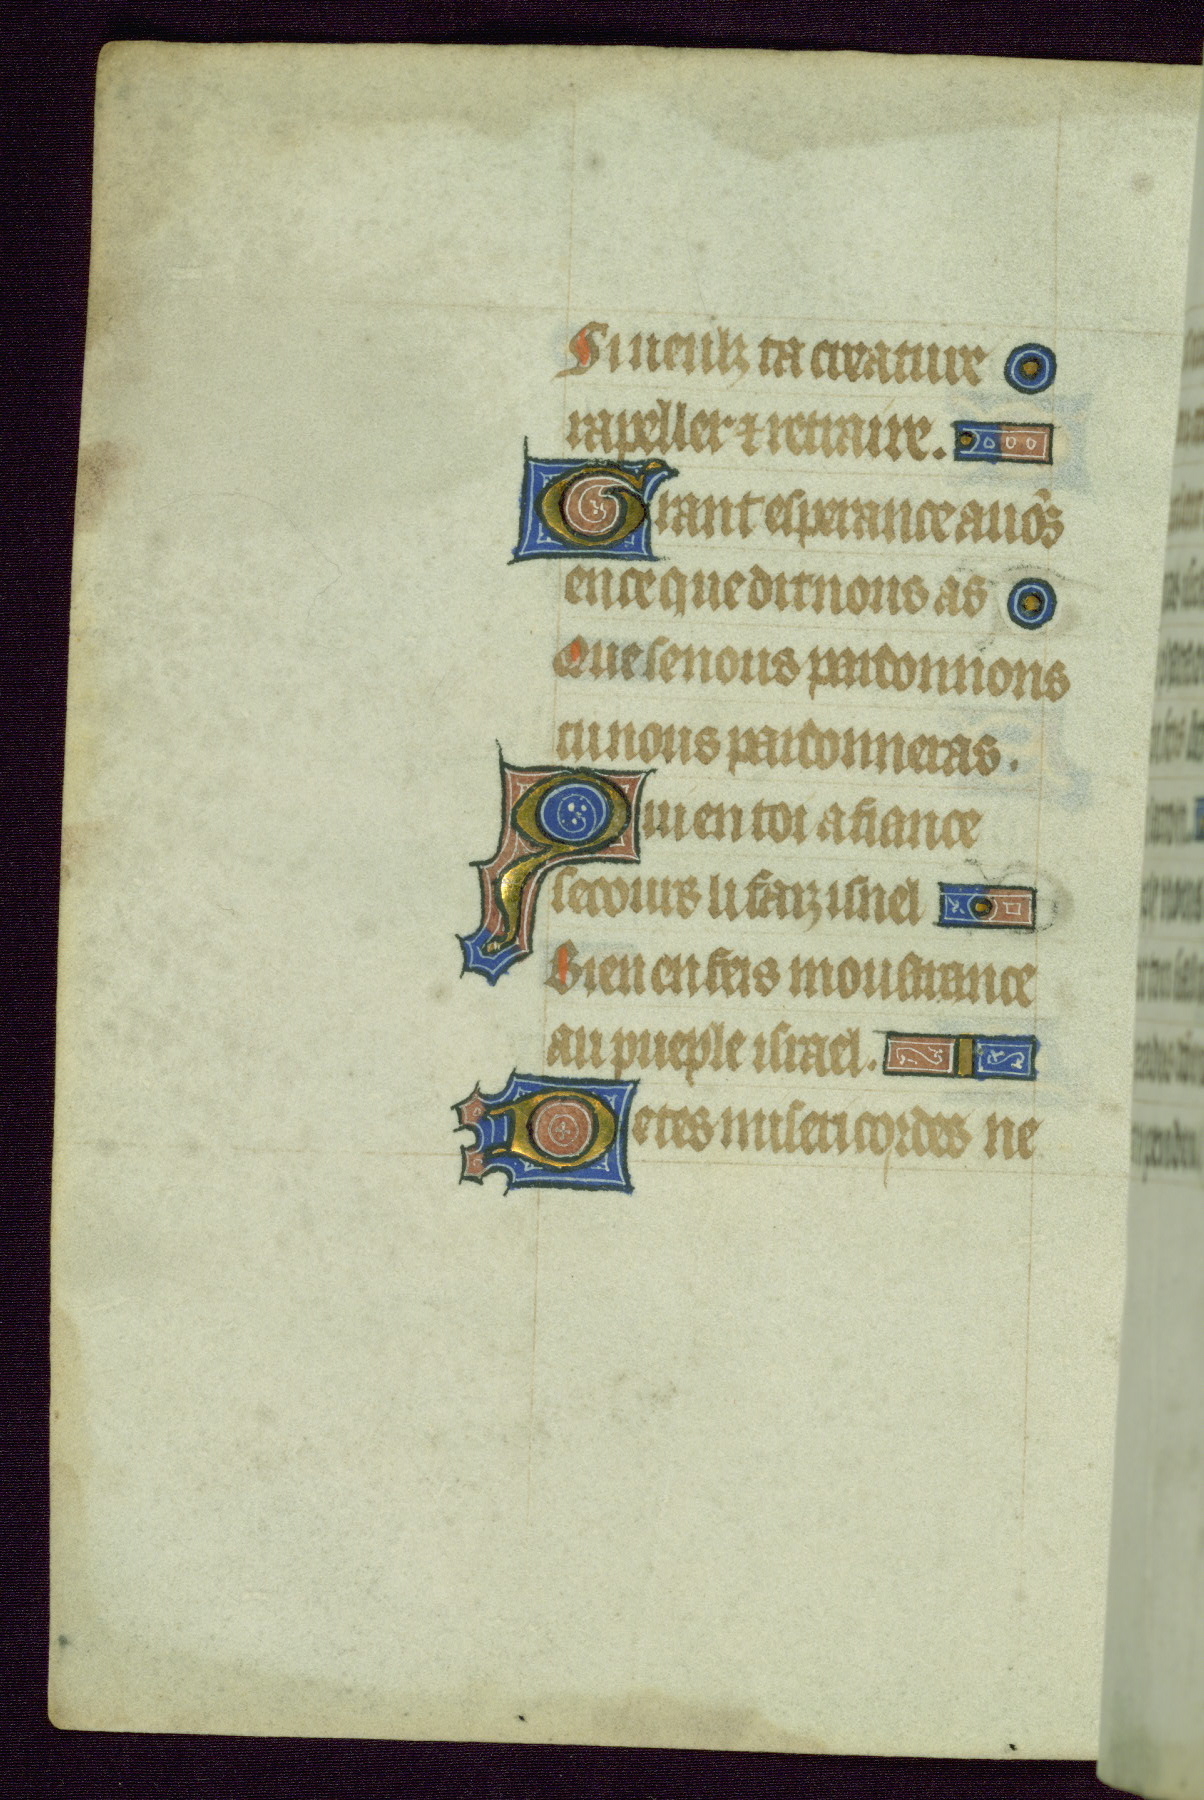 Si ueulz ta creature
rapeller ⁊ retraire.
Grant esperance auõs
en ce que dit nous as
Que se nous pardonnons
tu nous pardonneras.
Qui en toi a fiance
secours li faiz isnel
Bien en feis moustrance
au pueple israel.
De tes misericordes ne